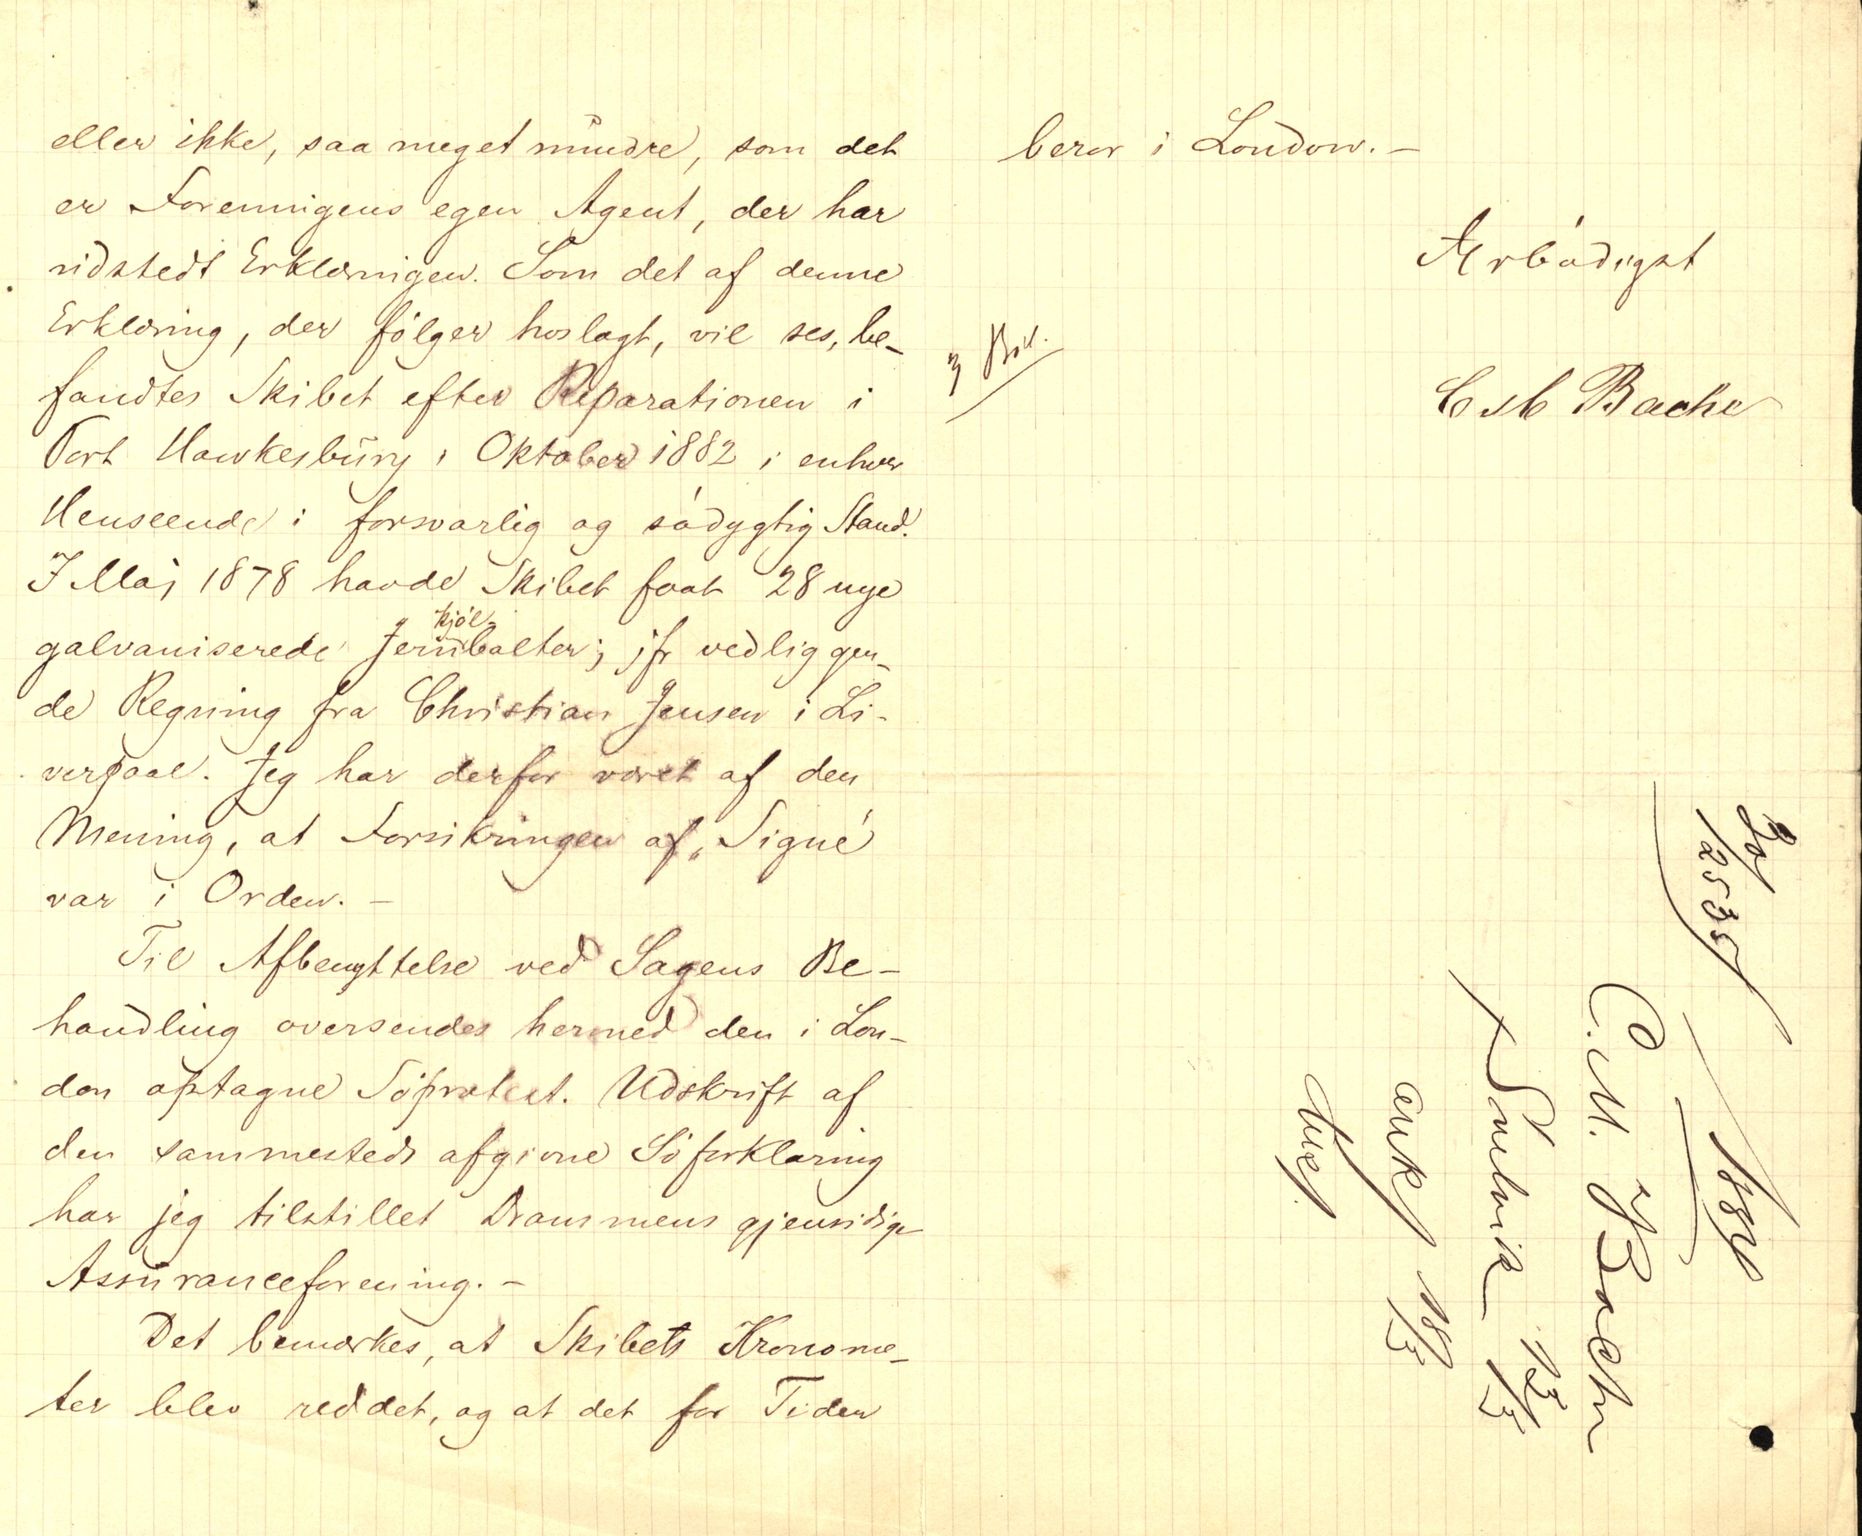 eller ikke, saa meget mindre, som det
er Foreningens egen Agent, der har
udstedt Erklæringen. Som det af denne
Erklæring, der følger hoslagt, vil ses, be-
fandtes Skibet efter Reparationen i
Port Hawkesbury i Oktober 1882 i enhver
Henseende i forsvarlig og södygtig Stand.
I Maj 1878 havde Skibet faat 28 nye
kjöl
galvaniserede Jernbolter; jfr vedliggen-
de Regning fra Christian Jensen i Li-
verpool. Jeg har derfor været af den
Mening, at Forsikringen af "Signe"
var i Orden. -
Til Afbenyttelse ved Sagens Be-
handling oversendes hermed den i Lon-
don optagne Söprotest. Udskrift af
den sammesteds afgivne Söforklaring
har jeg tilstillet Drammens gjensidige
Assuranceforening. -
Det bemærkes, at Skibets Kronome-
ter blev reddet, og at det for Tiden
beror i London. -
Ærbödigst
3 Bil.
C M Bache
1884
C. M. Bache
Sandvik 12/3
ank 18/3